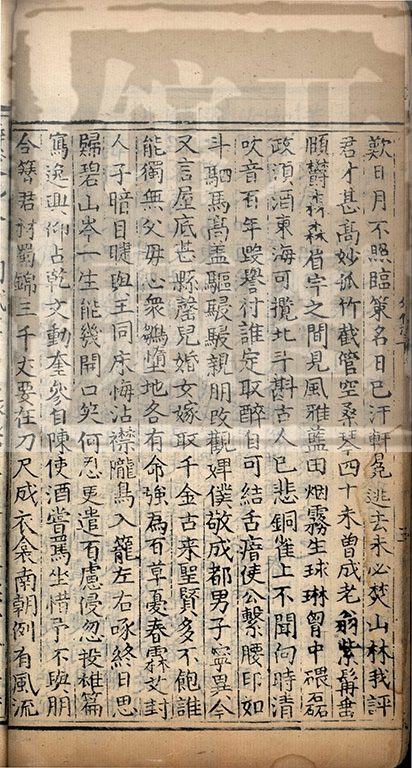 歎日月不照臨策名日已汗軒冕逃去未必焚山林我評
君才甚高妙孤竹截管空桑琴四十未曾成老翁紫髯垂
頤鬱森森眉宇之間見風雅藍田烟霧生球琳胷中磈磊
政須酒東海可攬北斗斟古人已悲銅雀上不聞向時清
吹音百年毀譽付誰定取醉自可結舌瘖使公繫腰印如
斗駟馬高盖驅駸駸親朋改觀婢僕敬成都男子寧異今
又言屋底甚縣罄兒婚女嫁取千金古来聖賢多不飽誰
能獨無父母心衆雛堕地各有命強為百草憂春霖艾封
人子暗目睫與王同床悔沾襟隴鳥入籠左右啄終日思
歸碧山岑一生能幾開口笑何忍更遣百慮侵忽投雄篇
寫逸興仰占乾文動奎參自陳使酒嘗罵坐惜予不與朋
合簪君材蜀錦三千丈要在刀尺成衣衾南朝例有風流